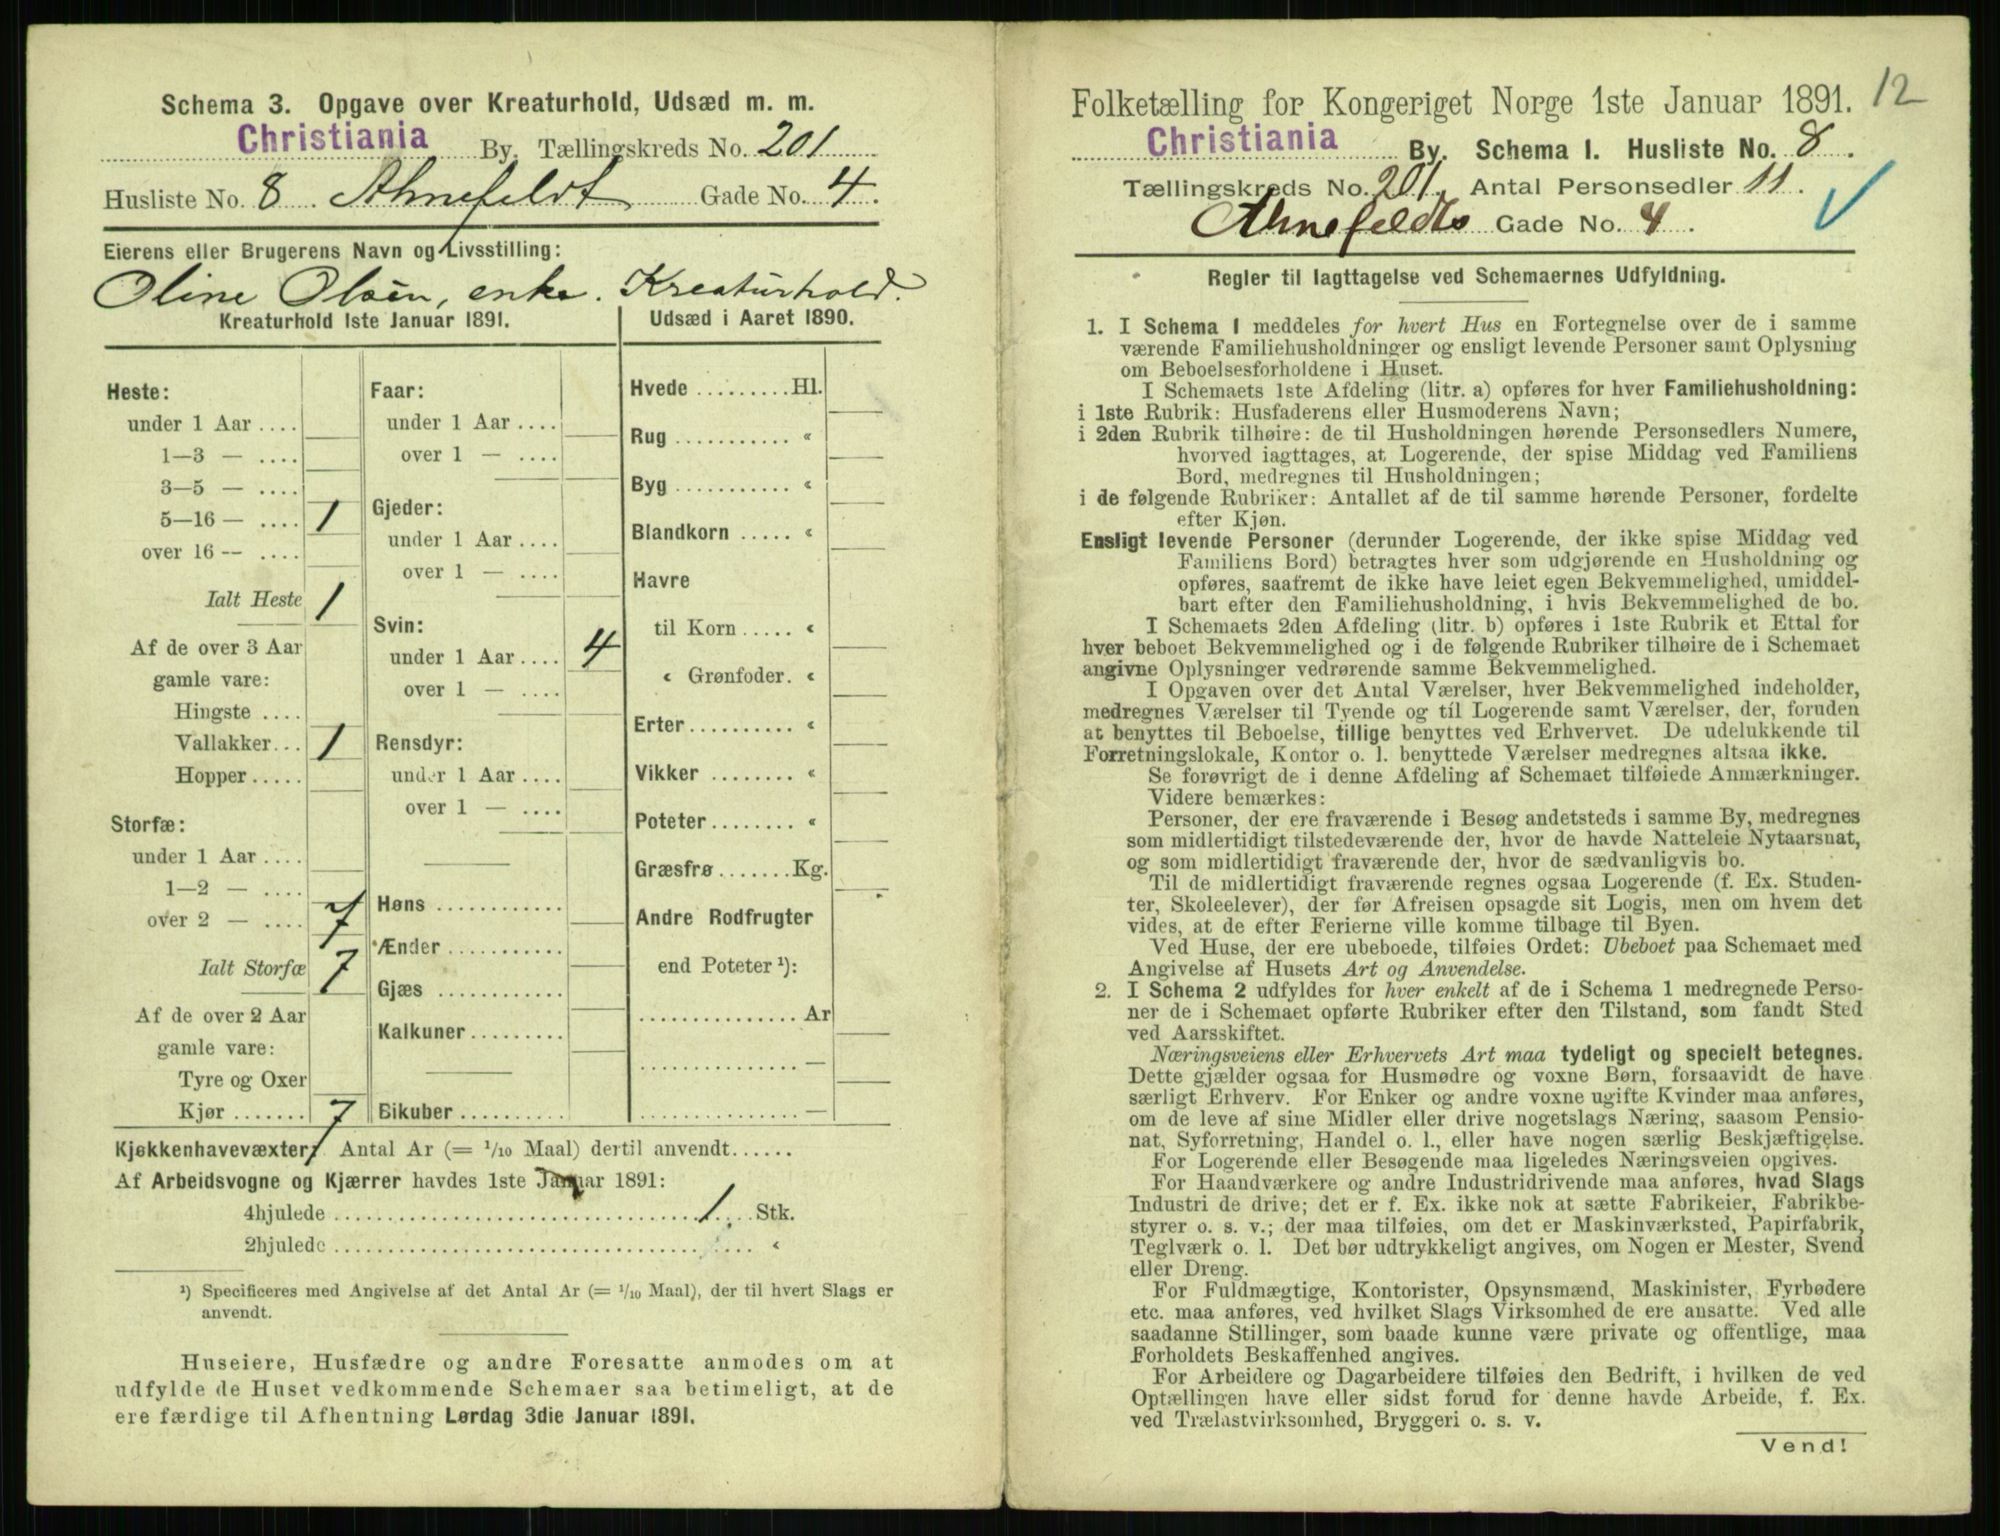 Schema 3. Opgave over Kreaturhold, Udsæd m. m.
Christiania By. Tællingskreds No. 201
Husliste No. 8 Ahnefeldt Gade No. 4.
Eierens eller Brugerens Navn og Livsstilling:
Oline Olsen, enke. Kreaturhold.
Kreaturhold 1ste Januar 1891.
Heste:
under 1 Aar ....
1—3 — ....
3—5 — ....
5—16 — .... 1
over 16 — ....
Ialt Heste 1
Af de over 3 Aar
gamle vare:
Hingste ....
Vallakker... 1
Hopper.....
Storfæ:
under 1 Aar ....
1—2 — ....
over 2 — .... 7
Ialt Storfæ 7
Af de over 2 Aar
gamle vare:
Tyre og Oxer
Kjør....... 7
Faar:
under 1 Aar ....
over 1 — ....
Gjeder:
under 1 Aar ....
over 1 — ....
Svin:
under 1 Aar .... 4
over 1 — ....
Rensdyr:
under 1 Aar ....
over 1 — ....
Høns ............
Ænder ...........
Gjæs ............
Kalkuner.........
Bikuber..........
Udsæd i Aaret 1890.
Hvede .........Hl.
Rug ........... «
Byg ........... «
Blandkorn ..... «
Havre
til Korn ..... «
« Grønfoder. «
Erter.......... «
Vikker ........ «
Poteter........ «
Græsfrø.......Kg.
Andre Rodfrugter
end Poteter ¹):
............... Ar
............... —
............... —
Kjøkkenhavevæxter: Antal Ar (= 1/10 Maal) dertil anvendt......
Af Arbeidsvogne og Kjærrer havdes 1ste Januar 1891:
4hjulede .................. 1 .... Stk.
2hjulede .................. «
¹) Specificeres med Angivelse af det Antal Ar (= 1/10 Maal), der til hvert Slags er
anvendt.
Huseiere, Husfædre og andre Foresatte anmodes om at
udfylde de Huset vedkommende Schemaer saa betimeligt, at de
ere færdige til Afhentning Lørdag 3die Januar 1891.
12
Folketælling for Kongeriget Norge 1ste Januar 1891.
Christiania By. Schema 1. Husliste No. 8.
Tællingskreds No. 201, Antal Personsedler 11.
Ahnefeldts Gade No. 4.
Regler til Iagttagelse ved Schemaernes Udfyldning.
1. I Schema 1 meddeles for hvert Hus en Fortegnelse over de i samme
værende Familiehusholdninger og ensligt levende Personer samt Oplysning
om Beboelsesforholdene i Huset.
I Schemaets 1ste Afdeling (litr. a) opføres for hver Familiehusholdning:
i 1ste Rubrik: Husfaderens eller Husmoderens Navn;
i 2den Rubrik tilhøire: de til Husholdningen hørende Personsedlers Numere,
hvorved iagttages, at Logerende, der spise Middag ved Familiens
Bord, medregnes til Husholdningen;
i de følgende Rubriker: Antallet af de til samme hørende Personer, fordelte
efter Kjøn.
Ensligt levende Personer (derunder Logerende, der ikke spise Middag ved
Familiens Bord) betragtes hver som udgjørende en Husholdning og
opføres, saafremt de ikke have leiet egen Bekvemmelighed, umiddel-
bart efter den Familiehusholdning, i hvis Bekvemmelighed de bo.
I Schemaets 2den Afdeling (litr. b) opføres i 1ste Rubrik et Ettal for
hver beboet Bekvemmelighed og i de følgende Rubriker tilhøire de i Schemaet
angivne Oplysninger vedrørende samme Bekvemmelighed.
I Opgaven over det Antal Værelser, hver Bekvemmelighed indeholder,
medregnes Værelser til Tyende og til Logerende samt Værelser, der, foruden
at benyttes til Beboelse, tillige benyttes ved Erhvervet. De udelukkende til
Forretningslokale, Kontor o. l. benyttede Værelser medregnes altsaa ikke.
Se forøvrigt de i denne Afdeling af Schemaet tilføiede Anmærkninger.
Videre bemærkes:
Personer, der ere fraværende i Besøg andetsteds i samme By, medregnes
som midlertidigt tilstedeværende der, hvor de havde Natteleie Nytaarsnat,
og som midlertidigt fraværende der, hvor de sædvanligvis bo.
Til de midlertidigt fraværende regnes ogsaa Logerende (f. Ex. Studen-
ter, Skoleelever), der før Afreisen opsagde sit Logis, men om hvem det
vides, at de efter Ferierne ville komme tilbage til Byen.
Ved Huse, der ere ubeboede, tilføies Ordet: Ubeboet paa Schemaet med
Angivelse af Husets Art og Anvendelse.
2. I Schema 2 udfyldes for hver enkelt af de i Schema 1 medregnede Perso-
ner de i Schemaet opførte Rubriker efter den Tilstand, som fandt Sted
ved Aarsskiftet.
Næringsveiens eller Erhvervets Art maa tydeligt og specielt betegnes.
Dette gjælder ogsaa for Husmødre og voxne Børn, forsaavidt de have
særligt Erhverv. For Enker og andre voxne ugifte Kvinder maa anføres,
om de leve af sine Midler eller drive nogetslags Næring, saasom Pensio-
nat, Syforretning, Handel o. l., eller have nogen særlig Beskjæftigelse.
For Logerende eller Besøgende maa ligeledes Næringsveien opgives.
For Haandværkere og andre Industridrivende maa anføres, hvad Slags
Industri de drive; det er f. Ex. ikke nok at sætte Fabrikeier, Fabrikbe-
styrer o. s. v.; der maa tilføies, om det er Maskinværksted, Papirfabrik,
Teglværk o. l. Det bør udtrykkeligt angives, om Nogen er Mester, Svend
eller Dreng.
For Fuldmægtige, Kontorister, Opsynsmænd, Maskinister, Fyrbødere
etc. maa anføres, ved hvilket Slags Virksomhed de ere ansatte. Ved alle
saadanne Stillinger, som baade kunne være private og offentlige, maa
Forholdets Beskaffenhed angives.
For Arbeidere og Dagarbeidere tilføies den Bedrift, i hvilken de ved
Optællingen have eller sidst forud for denne havde Arbeide, f. Ex.
ved Trælastvirksomhed, Bryggeri o. s. v.
Vend!